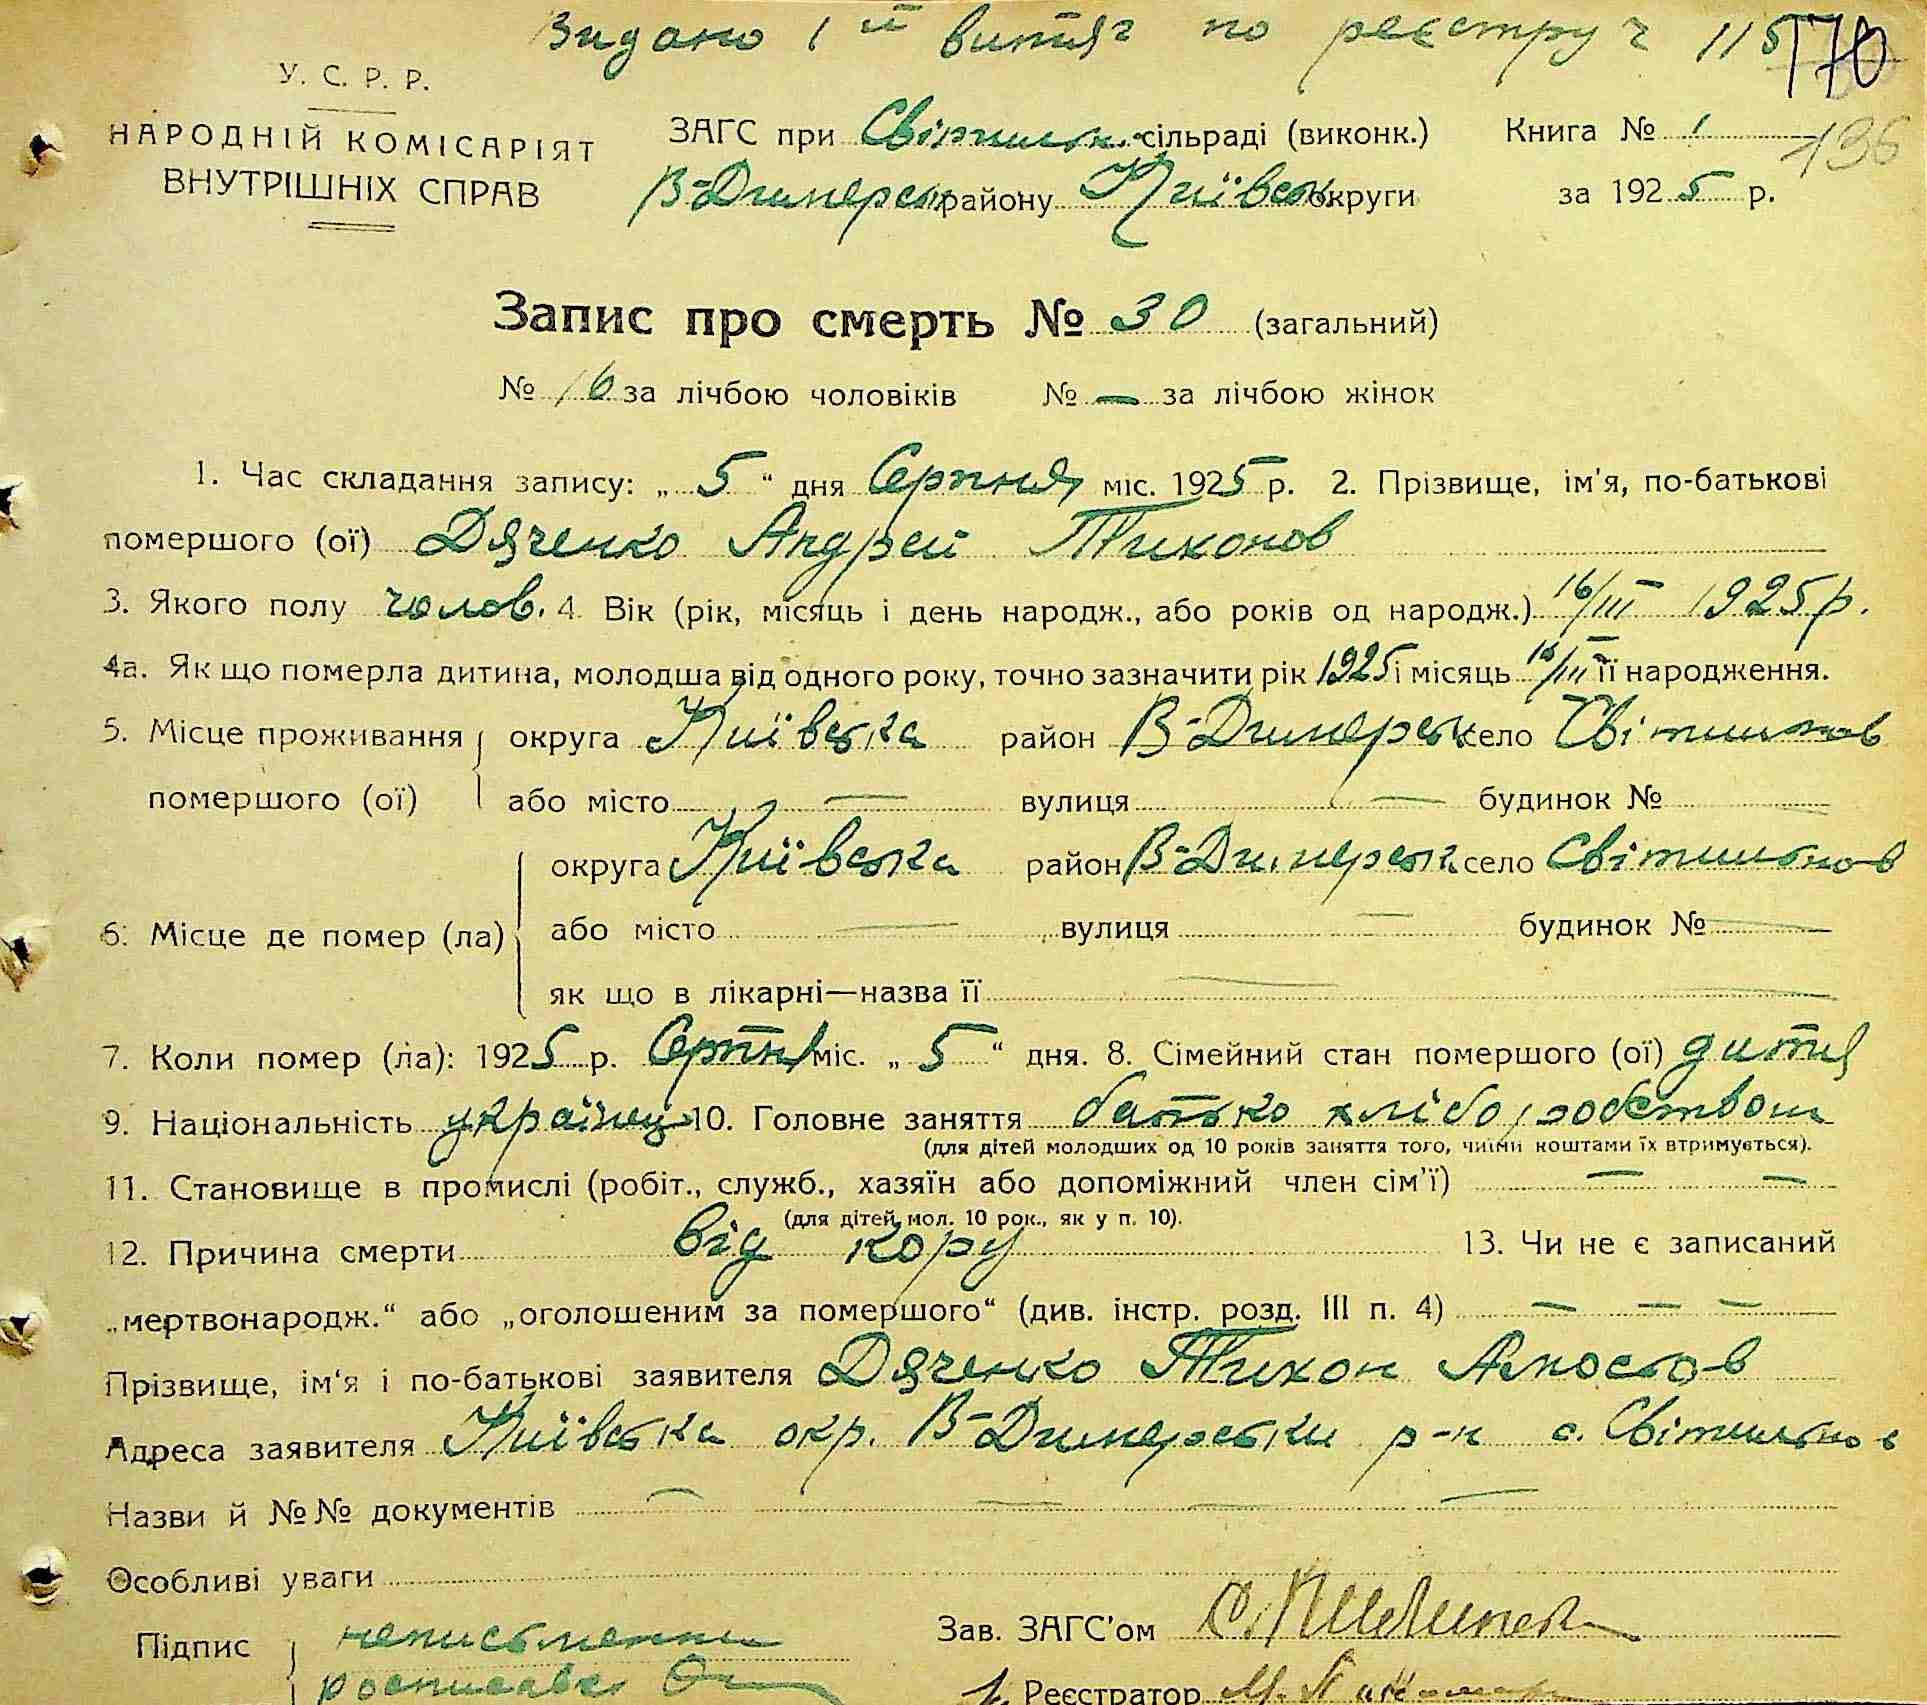 Видано 1й витяг по реєстру ч 115
170
У. С. Р. Р.
НАРОДНІЙ КОМІСАРІЯТ
ВНУТРІШНІХ СПРАВ
ЗАГС при Світильн. сільраді (виконк.)
В-Димерськ району Київськ округи
Книга № 1
196
за 1925 р.
Запис про смерть № 30 (загальний)
№ 16 за лічбою чоловіків № — за лічбою жінок
1. Час складання запису: „ 5 “ дня Серпня міс. 1925 р. 2. Прізвище, ім'я, по-батькові
помершого (ої) Дяченко Андрей Тихонов
3. Якого полу чолов. 4. Вік (рік, місяць і день народж., або років од народж.) 16/III 1925 р.
4а. Як що померла дитина, молодша від одного року, точно зазначити рік 1925 і місяць 16/III її народження.
5. Місце проживання округа Київська район В-Димерськ село Світильнов
помершого (ої) або місто — вулиця — будинок №
округа Київська район В-Димерськ село Світильнов
6. Місце де помер (ла) або місто — вулиця — будинок № —
як що в лікарні—назва її —
7. Коли помер (ла): 1925 р. Серпня міс. „ 5 “ дня. 8. Сімейний стан помершого (ої) дитя
9. Національність українец 10. Головне заняття батько хліборобством
(для дітей молодших од 10 років заняття того, чиїми коштами їх втримується).
11. Становище в промислі (робіт., служб., хазяїн або допоміжний член сім'ї) — —
(для дітей мол. 10 рок., як у п. 10).
12. Причина смерти від кору 13. Чи не є записаний
„мертвонародж.“ або „оголошеним за помершого“ (див. інстр. розд. III п. 4) — — —
Прізвище, ім'я і по-батькові заявителя Дяченко Тихон Амосов
Адреса заявителя Київська окр. В-Димерський р-н с. Світильнов
Назви й №№ документів — — — —
Особливі уваги
Підпис неписьменний
росписався
Зав. ЗАГС'ом
Реєстратор М.